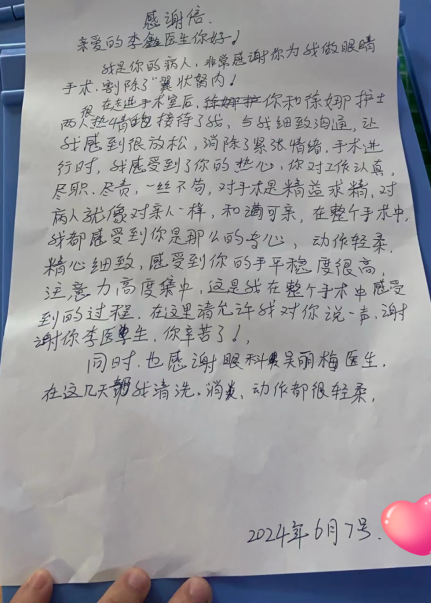 感谢信.
亲爱的李鑫医生你好!
我是你的病人，非常感谢你为我做眼睛
手术，割除了"翼状胬肉!
在走进手术室后，你和徐娜护士
两人很热情的接待了我，与我细致沟通，让
我感到很放松，消除了紧张情绪，手术进
行时，我感受到了你的热心，你对工作认真，
尽职、尽责，一丝不苟，对手术是精益求精，对
病人就像对亲人一样，和蔼可亲，在整个手术中，
我都感受到你是那么的专心，动作轻柔，
精心细致，感受到你的手平稳度很高，
注意力高度集中，这是我在整个手术中感受
到的过程，在这里请允许我对你说一声，谢
谢你李医生，你辛苦了!，
同时，也感谢眼科吴丽梅医生，
在这几天我清洗、消炎，动作都很轻柔，
2024年6月7号.